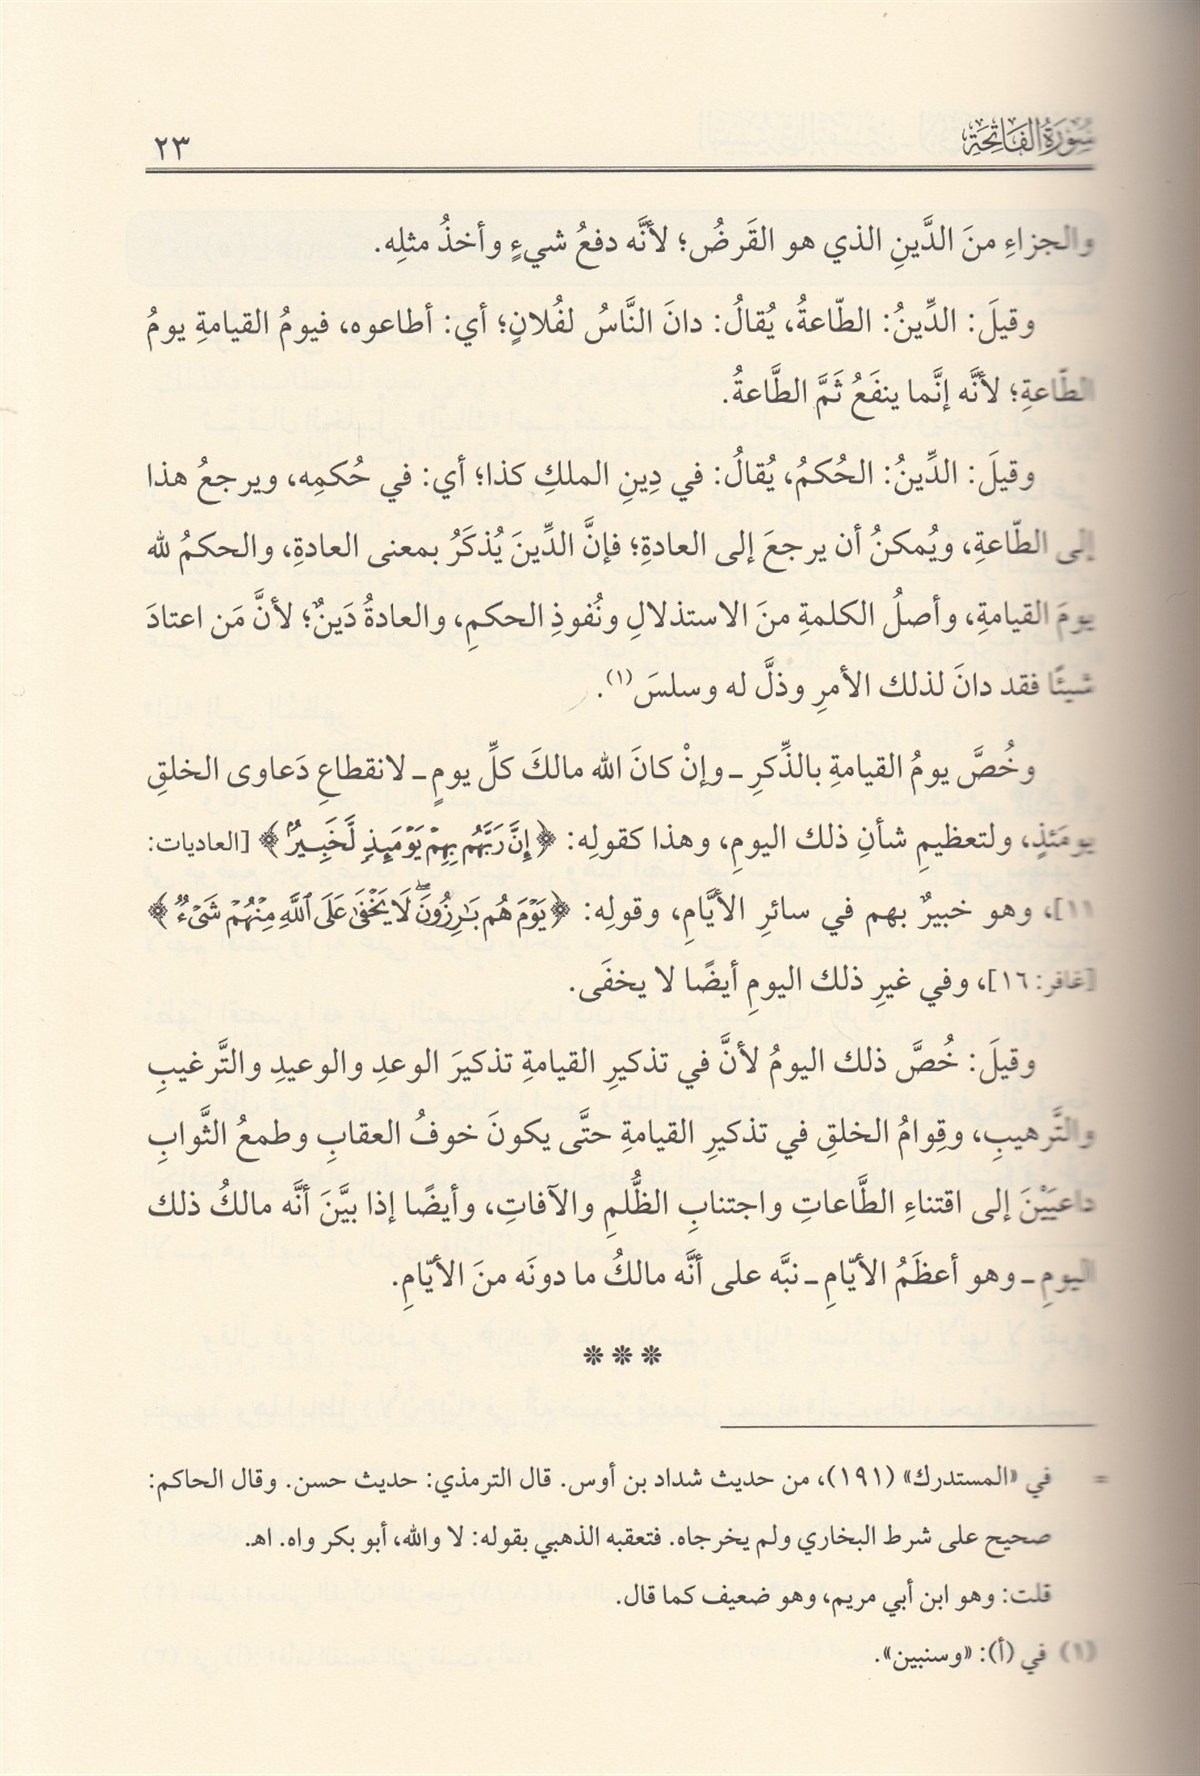 سُورَةُ الفَاتِحَةِ ٢٣
والجزاءِ منَ الدَّينِ الذي هو القَرضُ؛ لأنَّه دفعُ شيءٍ وأخذُ مثلِه.
وقيلَ: الدِّينُ: الطّاعةُ، يُقالُ: دانَ النَّاسُ لفُلانٍ؛ أي: أطاعوه، فيومُ القيامةِ يومُ
الطّاعةِ؛ لأنَّه إنَّما ينفَعُ ثَمَّ الطَّاعةُ.
وقيلَ: الدِّينُ: الحُكمُ، يُقالُ: في دِينِ الملكِ كذا؛ أي: في حُكمِه، ويرجعُ هذا
إلى الطّاعةِ، ويُمكنُ أن يرجعَ إلى العادةِ؛ فإنَّ الدِّينَ يُذكَرُ بمعنى العادةِ، والحكمُ لله
يومَ القيامةِ، وأصلُ الكلمةِ منَ الاستذلالِ ونُفوذِ الحكمِ، والعادةُ دَينٌ؛ لأنَّ مَن اعتادَ
شيئًا فقد دانَ لذلك الأمرِ وذلَّ له وسلسَ(١).
وخُصَّ يومُ القيامةِ بالذِّكرِ ـ وإنْ كانَ الله مالكَ كلِّ يومٍ ـ لانقطاعِ دَعاوى الخلقِ
يومَئذٍ، ولتعظيمِ شأنِ ذلك اليومِ، وهذا كقولِه: ﴿إِنَّ رَبَّهُم بِهِمْ يَوْمَئِذٍ لَّخَبِيرٌ﴾ [العاديات:
١١]، وهو خبيرٌ بهم في سائرِ الأيَّامِ، وقولِه: ﴿يَوْمَ هُم بَٰرِزُونَ ۖ لَا يَخْفَىٰ عَلَى ٱللَّهِ مِنْهُمْ شَىْءٌ﴾
[غافر: ١٦]، وفي غيرِ ذلك اليومِ أيضًا لا يخفَى.
وقيلَ: خُصَّ ذلك اليومُ لأنَّ في تذكيرِ القيامةِ تذكيرَ الوعدِ والوعيدِ والتَّرغيبِ
والتَّرهيبِ، وقِوامُ الخلقِ في تذكيرِ القيامةِ حتَّى يكونَ خوفُ العقابِ وطمعُ الثَّوابِ
داعيَيْنَ إلى اقتناءِ الطَّاعاتِ واجتنابِ الظُّلمِ والآفاتِ، وأيضًا إذا بيَّنَ أنَّه مالكُ ذلك
اليومِ ـ وهو أعظَمُ الأيّامِ ـ نبَّه على أنَّه مالكُ ما دونَه منَ الأيّامِ.
❊ ❊ ❊
= في «المستدرك» (١٩١)، من حديث شداد بن أوس. قال الترمذي: حديث حسن. وقال الحاكم:
صحيح على شرط البخاري ولم يخرجاه. فتعقبه الذهبي بقوله: لا والله، أبو بكر واه. اهـ.
قلت: وهو ابن أبي مريم، وهو ضعيف كما قال.
(١) في (أ): «وسنبين».